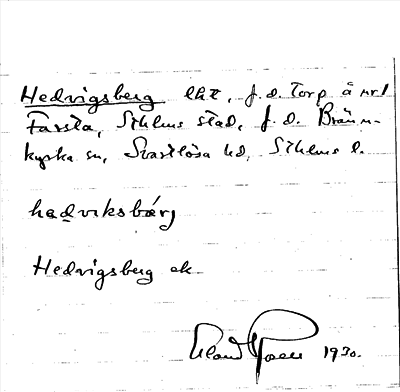 Hedvigsberg lht, f.d. Torp å nr 1
Farsta, Sthlms stad, f.d. Bränn-
kyrka sn, Svartlösa hd, Sthlms l.
hadviksbærj
Hedvigsberg ek
1930.